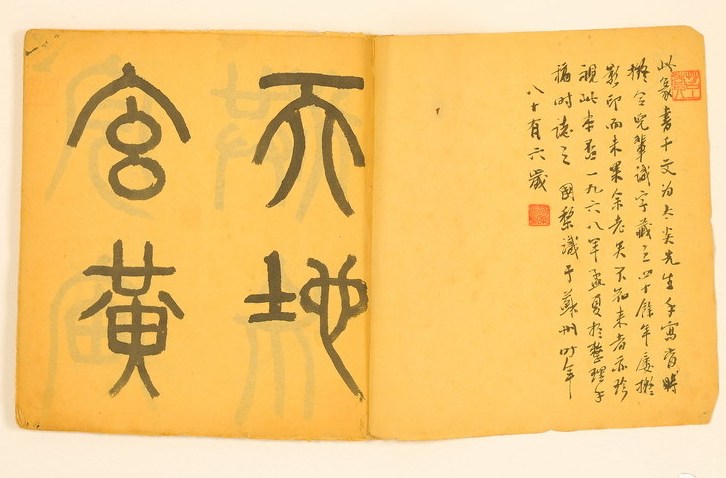 此篆書千文为太炎先生手寫
擬令兒輩識字藏之四十餘年屢擬
影印而未果余老矣不知来者亦珍
視此本否一九六八年孟夏於整理手
稿时誌之國黎識于蘇州时年
八十有六歲
天地
玄黃